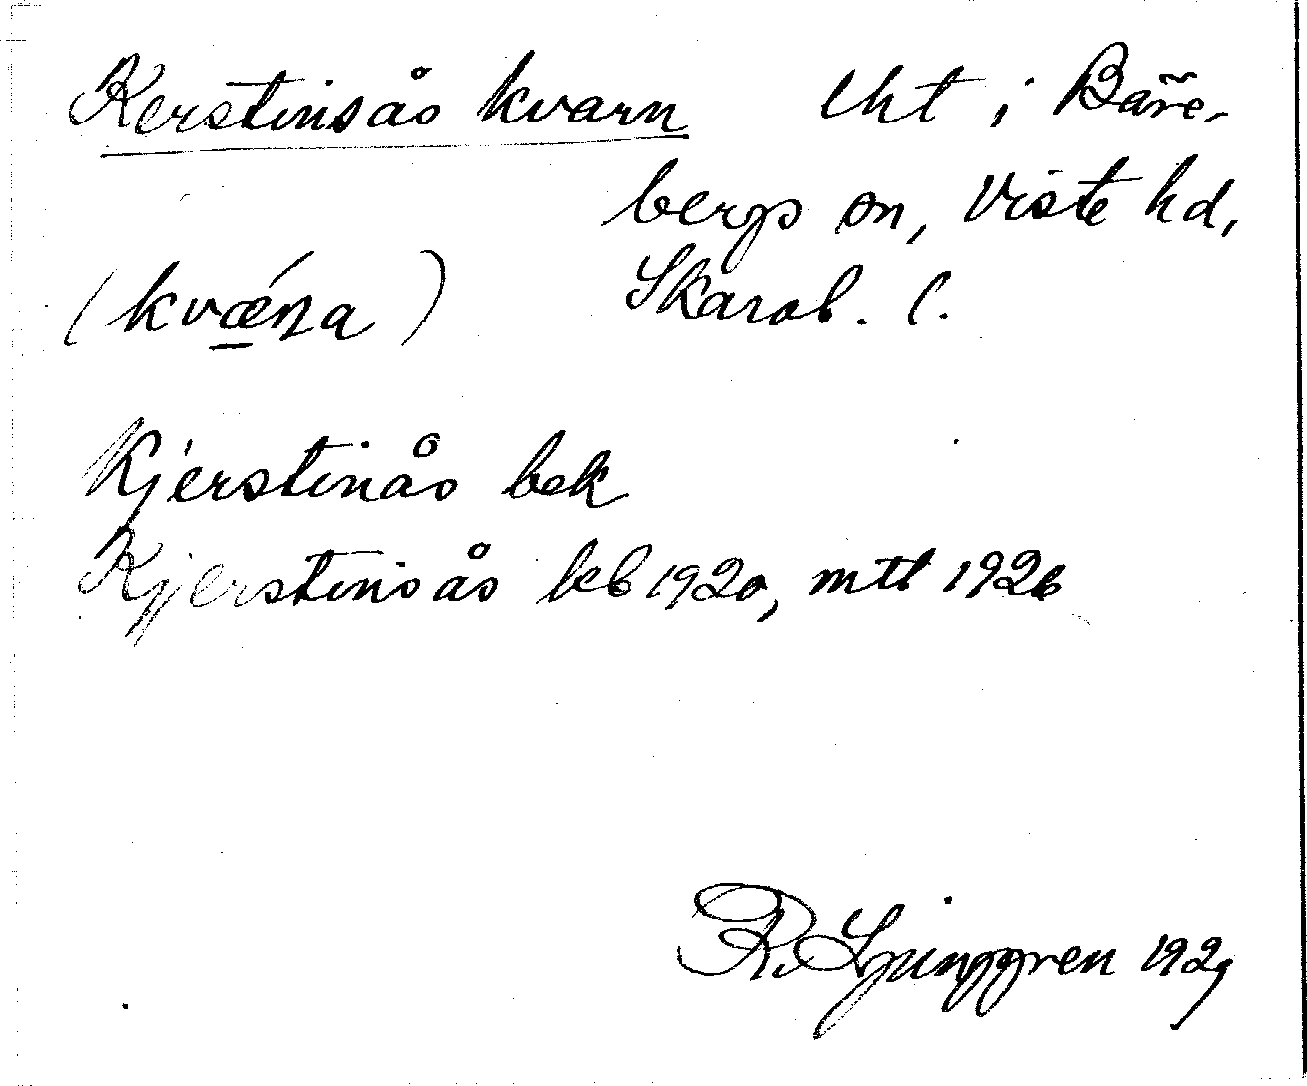 Kerstinsås kvarn lht i Bäre-
bergs sn, Viste hd,
(kvǽɳa) Skarab. l.
Kjerstinås bek
Kjerstinsås kb 1920, mtl 1926
R. Ljunggren 1929